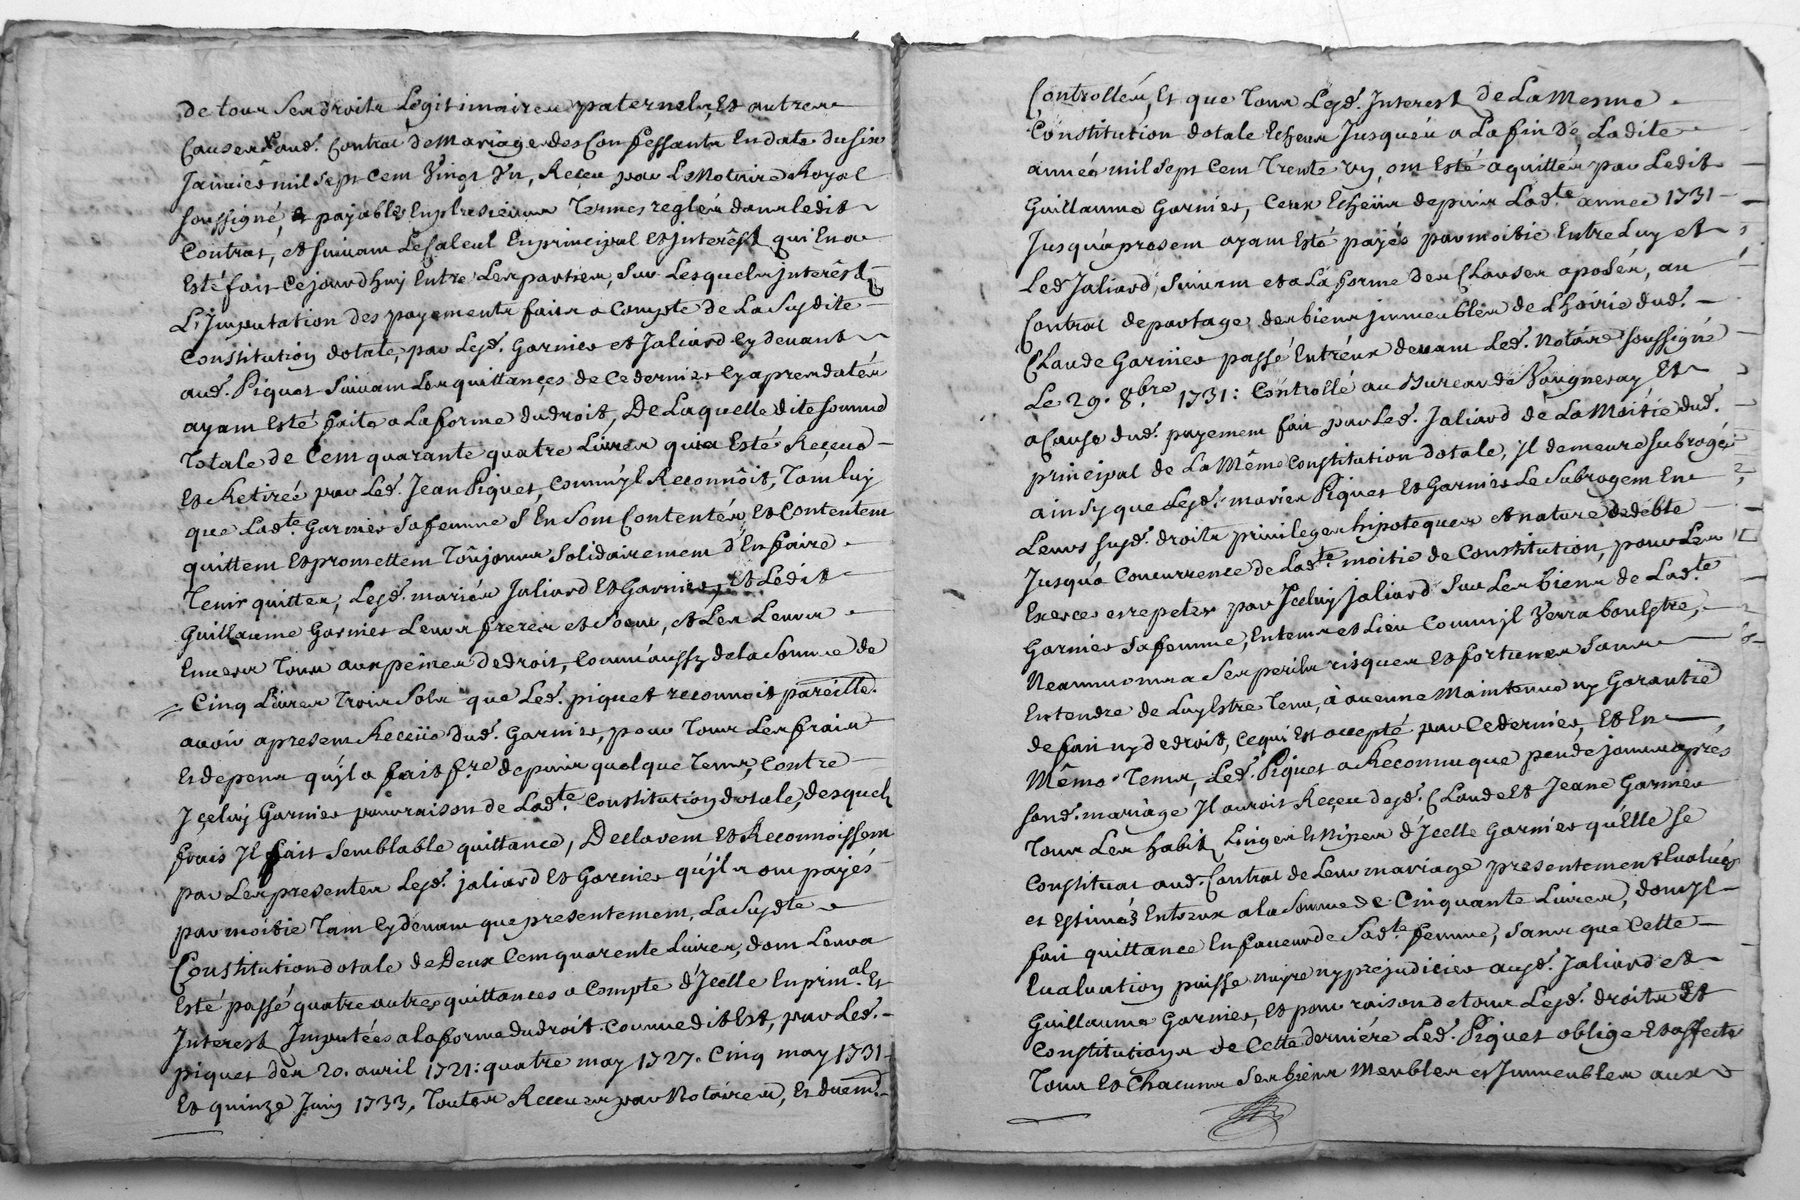 de tous ses droits Legitimaires paternels, Et autres
Causes aud. Contrat de Mariage des Confessants En date du six
Janvier mil sept cent Vingt Un, Receu par Le Notaire Royal
soussigné, et payables En plusieurs Termes regléz dans ledit
Contrat, et suivant Le Calcul En principal Et Interêst qui En a
Esté fait Cejourd'huy Entre Les parties, sur Lesquels interêst
L'Imputation des payements faits a Compte de La Susdite
Constitution dotale, par Lesd. Garnier et Jaliard Cy devant
aud. Piquet suivant Les quittançes de Ce dernier Cy apres datés
ayant Esté faite a La forme du droit, De Laquelle dite somme
Totale de Cent quarante quatre Livres qui a Esté Receue
Et Retirée par Led. Jean Piquet, Comm'jl Reconnoît, Tant luy
que Lad.te Garnier sa femme S'En sont Contentés, Et Contentent
quittent Et promettent Toûjours Solidairement d'En faire
Tenir quittes, Lesd. mariés Jaliard Et Garnier, Et Ledit
Guillaume Garnier Leurs freres et Soeur, et Les Leurs
Envers Tous aux peines de droit, Comm'aussy de la Somme de
Cinq Livres Trois Sols que Led. piquet reconnoit pareille.
avoir apresent Receüe dud. Garnier, pour Tous Les frais
Et depens qu'jl a fait f.re depuis quelque Tems, Contre
Jçeluy Garnier pour raison de Lad.te Constitution dotale, desquels
frais Jl fait Semblable quittance, Declarent Et Reconnoissent
par Les presentes Lesd. jaliard Et Garnier qu'jls ont payés
par moitié Tant Cy devant que presentement, La Susd.te
Constitution dotale de Deux Cent quarente Livres, dont Leur a
Esté passé quatre autres quittances a Compte d'Icelle En prin.al Et
Interest Imputées a la forme du droit Comme dit Est, par Led.
piquet des 20. avril 1721: quatre may 1727. Cinq may 1731
Et quinze Juin 1733, Toutes Receues par Notaires, Et duem.t
Controllés, Et que Tous Lesd. Interest de La Mesme
Constitution dotale Echeus Jusqu'éu a La fin de Ladite
année mil sept Cent Trente Un, ont Esté aquittés par Ledit
Guillaume Garnier, Ceux Echeüs depuis Lad.te année 1731
Jusqu'apresent ayant Esté payés par moitié Entre Luy et
Led. Jaliard, suivant et a La forme des Clauses aposés, au
Contrat de partage des biens jmmeubles de L'hoirie dud.
Claude Garnier passé Entréux devant Led. Notaire soussigné
Le 29. 8.bre 1731: Controllé au Bureau de Vaugneray, Et
a Cause dud. payement fait par Led. Jaliard de La Moitié dud.
principal de La Même Constitution dotale, Jl demeure subrogé
ainsy que Lesd. mariés Piquet Et Garnier Le Subrogent En
Leurs susd. droits privileges hipoteques et nature de débte
Jusqu'a Concurrence de Lad.te moitié de Constitution, pour Les
Exercer et repeter par Jceluy Jaliard Sur Les biens de Lad.te
Garnier sa femme, En tems et Lieu Comm'jl Verra bon Estre,
Neanmoins a Ses perils risques Et fortunes Sans
Entendre de Luy Estre Tenu, à aucune Maintenue ny Garantie
de fait ny de droit, Ce qui Est accepté par Ce dernier, Et En
Même Tems, Led. Piquet a Reconnu que peu de jours aprés
sond. mariage Jl auroit Reçeu desd. Claude Et Jeane Garnier
Tous Les habits Linges Et Nipes d'Jcelle Garnier qu'Elle se
Constituat aud. Contrat de Leur mariage presentement Evalués
et Estimés Entreux a la Somme de Cinquante Livres, dont jl
fait quittance En faveur de Sad.te femme, Sans que Cette
Evaluation puisse nuire ny prejudicier ausd. Jaliard et
Guillaume Garnier, Et pour raison de tous Lesd. droits Et
Constitutions de Cette derniére Led. Piquet oblige Et affecte
Tous Et Chacuns Ses biens Meubles et Jmmeubles aux